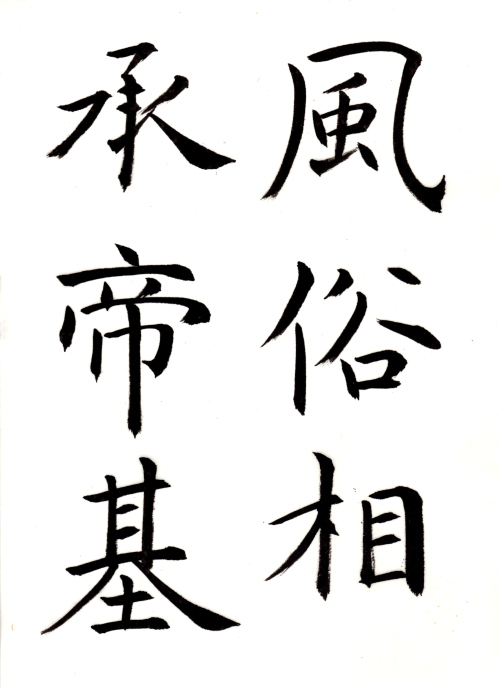 風俗相
承帝基